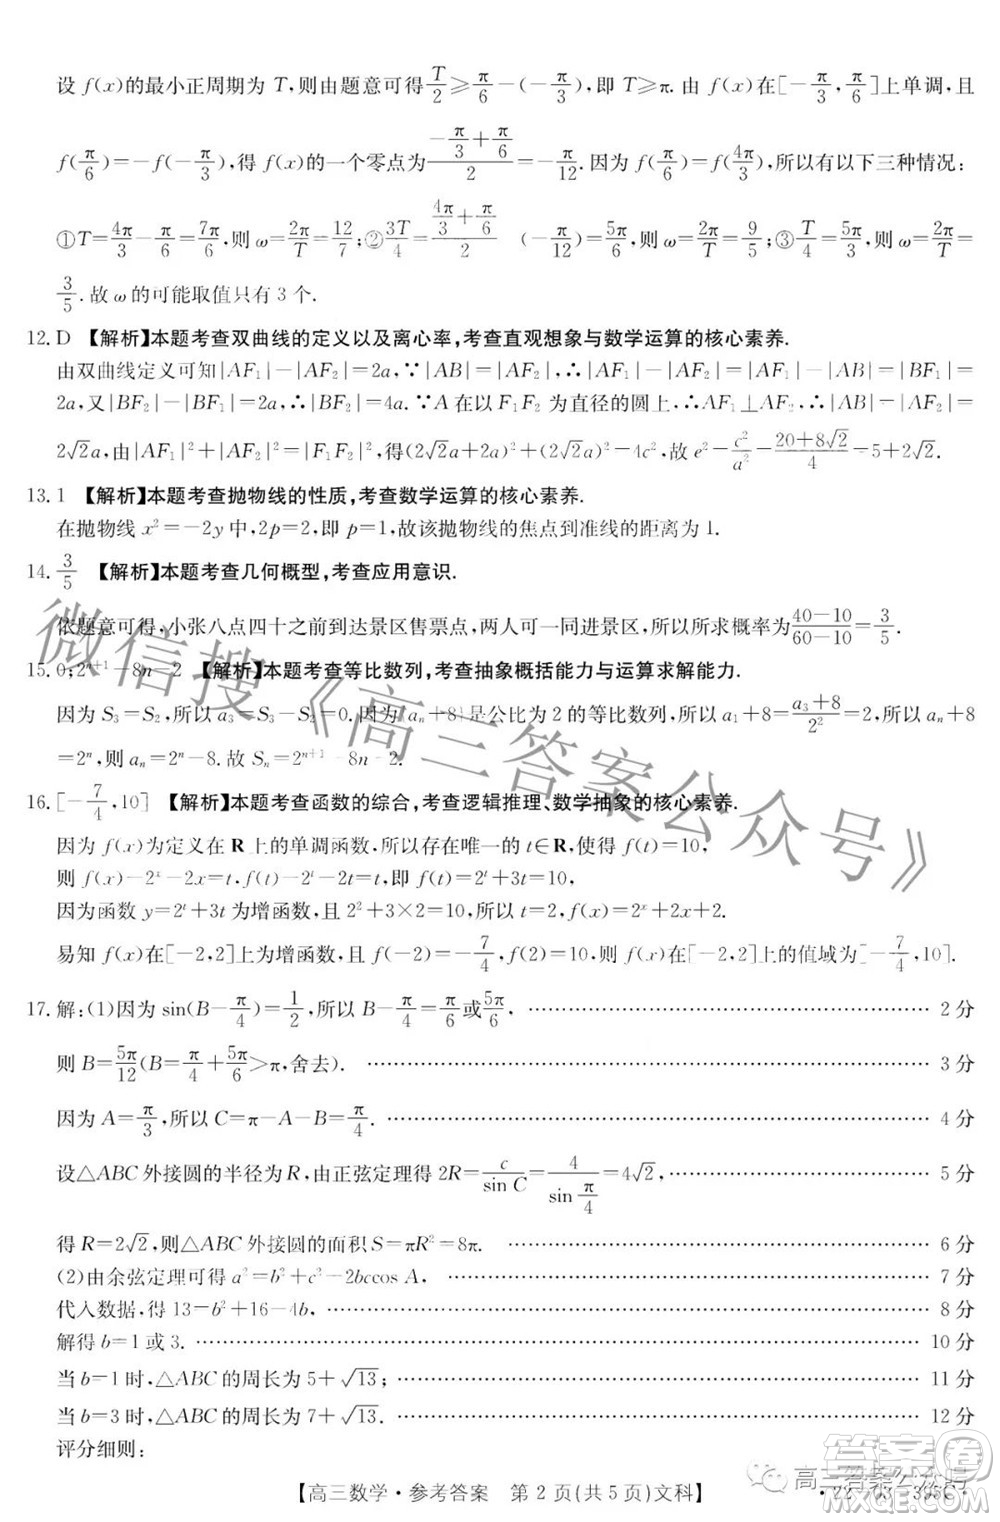 设 f(x)的最小正周期为 T,则由题意可得 T/2⩾π/6−(−π/3),即 T⩾π. 由 f(x)在[−π/3,π/6]上单调,且
f(π/6)=−f(−π/3),得 f(x)的一个零点为 (−π/3+π/6)/2=−π/12. 因为 f(π/6)=f(4π/3),所以有以下三种情况:
①T=4π/3−π/6=7π/6,则 ω=2π/T=12/7;②3T/4=(4π/3+π/6)/2 (−π/12)=5π/6,则 ω=2π/T=9/5;③T/4=5π/3,则 ω=2π/T=
3/5. 故 ω 的可能取值只有 3 个.
12. D 【解析】本题考查双曲线的定义以及离心率,考查直观想象与数学运算的核心素养.
由双曲线定义可知|AF₁|−|AF₂|=2a,∵|AB|=|AF₂|,∴|AF₁|−|AF₂|=|BF₁|=
2a,又|BF₂|−|BF₁|=2a,∴|BF₂|=4a. ∵A 在以 F₁F₂ 为直径的圆上,∴AF₁⊥AF₂,∴|AB|=|AF₂|=
2√2a,由|AF₁|²+|AF₂|²=|F₁F₂|²,得(2√2a+2a)²+(2√2a)²=4c². 故 e²−c²/a²=(20+8√2)/4−5+2√2.
13. 1 【解析】本题考查抛物线的性质,考查数学运算的核心素养.
在抛物线 x²=−2y 中,2p=2,即 p=1,故该抛物线的焦点到准线的距离为 1.
14. 3/5 【解析】本题考查几何概型,考查应用意识.
依题意可得,小张八点四十之前到达景区售票点,两人可一同进景区,所以所求概率为(40−10)/(60−10)=3/5.
15. 0;2ⁿ⁺¹−8n−2 【解析】本题考查等比数列,考查抽象概括能力与运算求解能力.
因为 S₃=S₂,所以 a₃=S₃−S₂=0. 因为{aₙ+8}是公比为 2 的等比数列,所以 a₁+8=(a₃+8)/2²=2,所以 aₙ+8
=2ⁿ,则 aₙ=2ⁿ−8. 故 Sₙ=2ⁿ⁺¹−8n−2.
16. [−7/4,10] 【解析】本题考查函数的综合,考查逻辑推理、数学抽象的核心素养.
因为 f(x)为定义在 R 上的单调函数,所以存在唯一的 t∈R,使得 f(t)=10,
则 f(x)−2ˣ−2x=t,f(t)−2ᵗ−2t=t,即 f(t)=2ᵗ+3t=10,
因为函数 y=2ᵗ+3t 为增函数,且 2²+3×2=10,所以 t=2,所以 f(x)=2ˣ+2x+2.
易知 f(x)在[−2,2]上为增函数,且 f(−2)=−7/4,f(2)=10,则 f(x)在[−2,2]上的值域为[−7/4,10].
17. 解:(1)因为 sin(B−π/4)=1/2,所以 B−π/4=π/6或5π/6, 2 分
则 B=5π/12(B=π/4+5π/6>π,舍去). 3 分
因为 A=π/3,所以 C=π−A−B=π/4. 4 分
设△ABC 外接圆的半径为 R,由正弦定理得 2R=c/sin C=4/sin π/4=4√2, 5 分
得 R=2√2,则△ABC 外接圆的面积 S=πR²=8π. 6 分
(2)由余弦定理可得 a²=b²+c²−2bccos A, 7 分
代入数据,得 13=b²+16−4b, 8 分
解得 b=1 或 3. 10 分
当 b=1 时,△ABC 的周长为 5+√13; 11 分
当 b=3 时,△ABC 的周长为 7+√13. 12 分
评分细则:
【高三数学·参考答案 第 2 页(共 5 页)文科】
微信搜《高三答案公众号》
高三答案公众号
答案圈
MXQE.COM